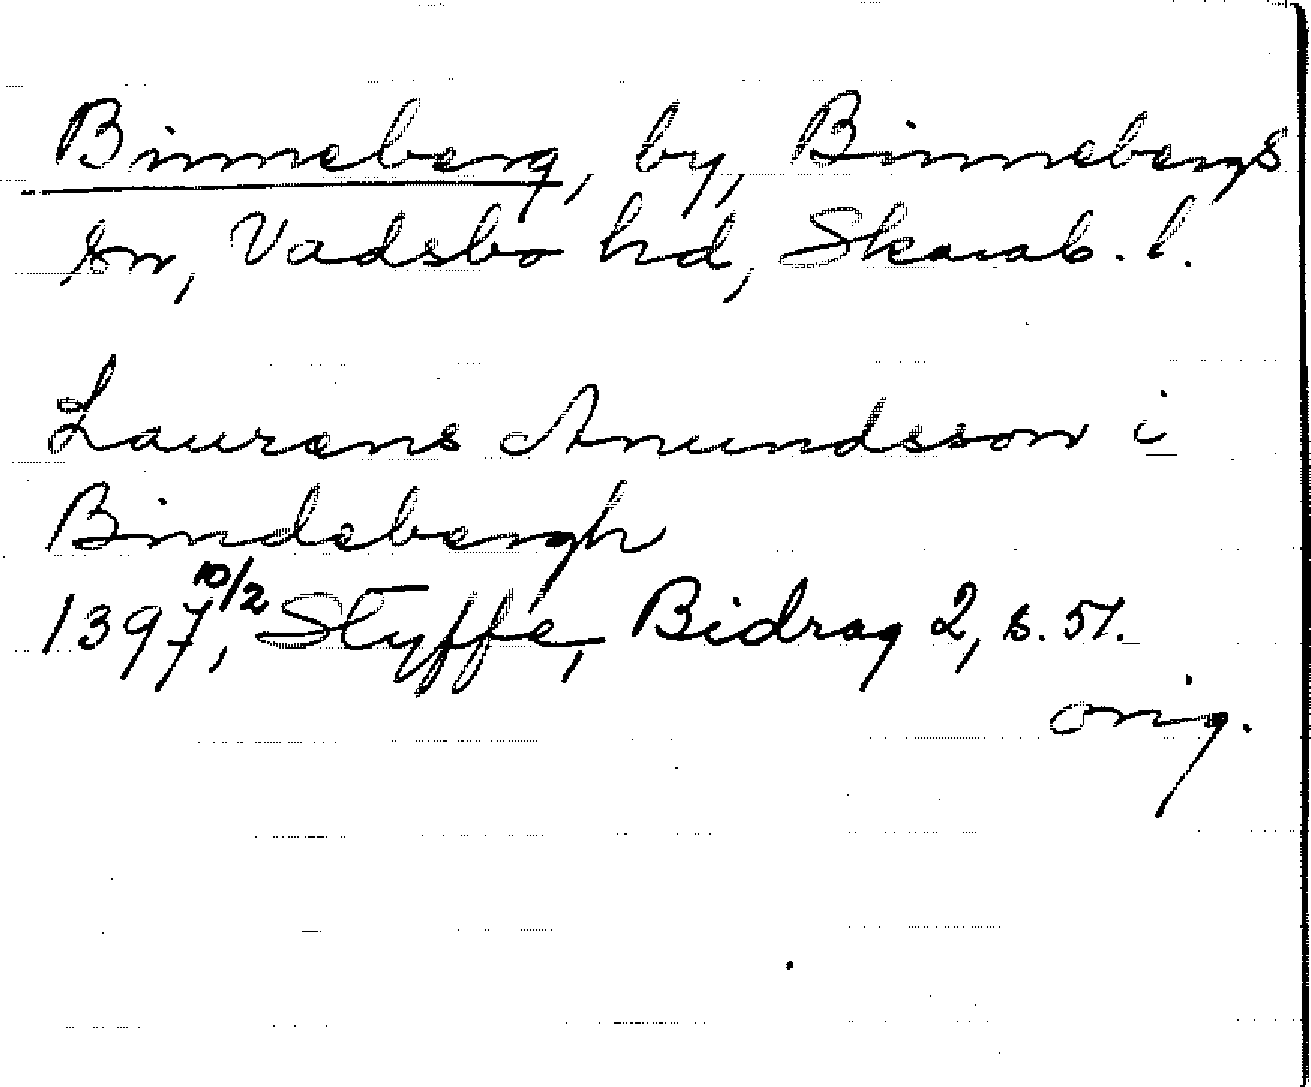 Binneberg, by, Binnebergs
sn, Vadsbo hd, Skarab. l.
Laurens Anundsson i
Bindebergh
1397 10/2, Styffe, Bidrag 2, s. 51.
orig.